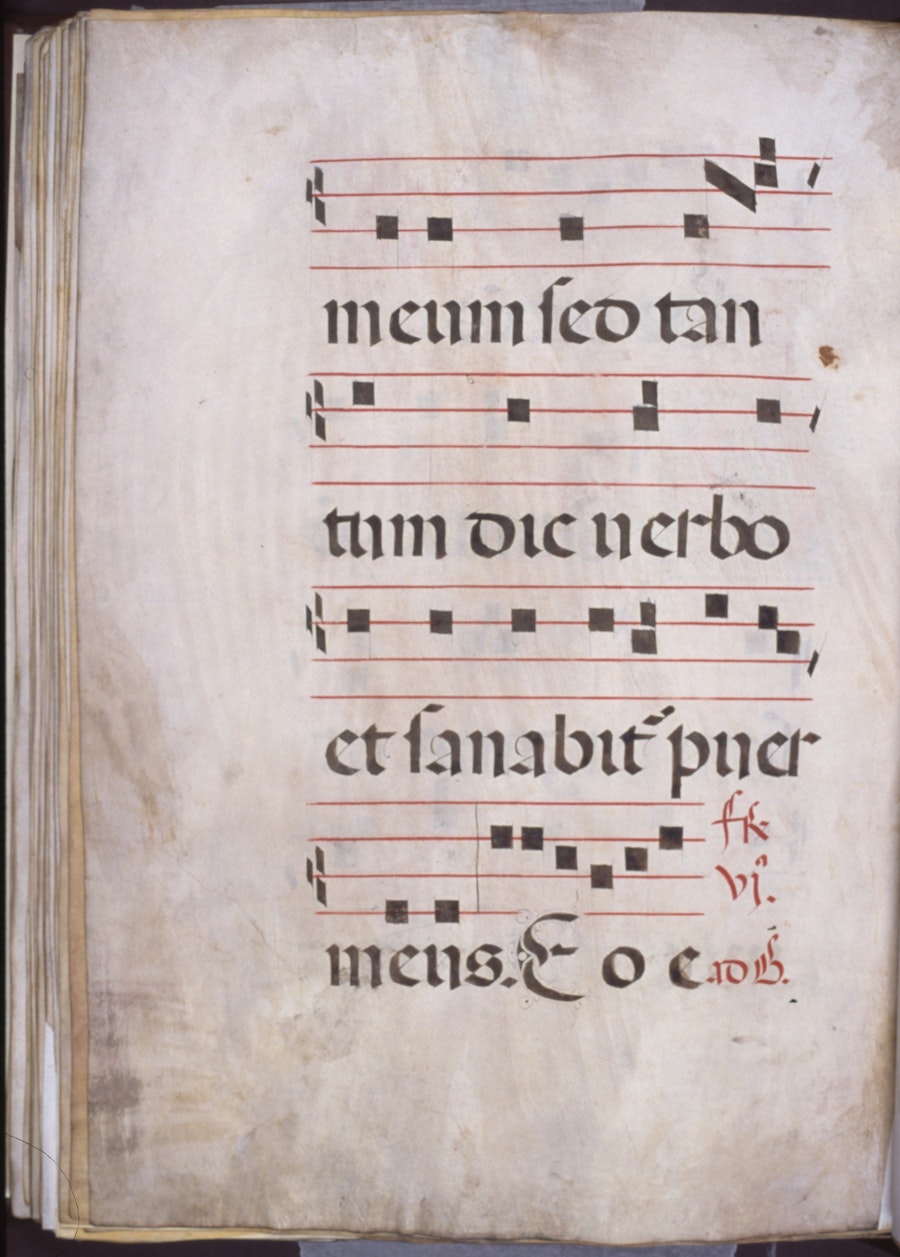 meum sed tan
tum dic uerbo
et sanabit᷑ puer
meus. E o e ad B.